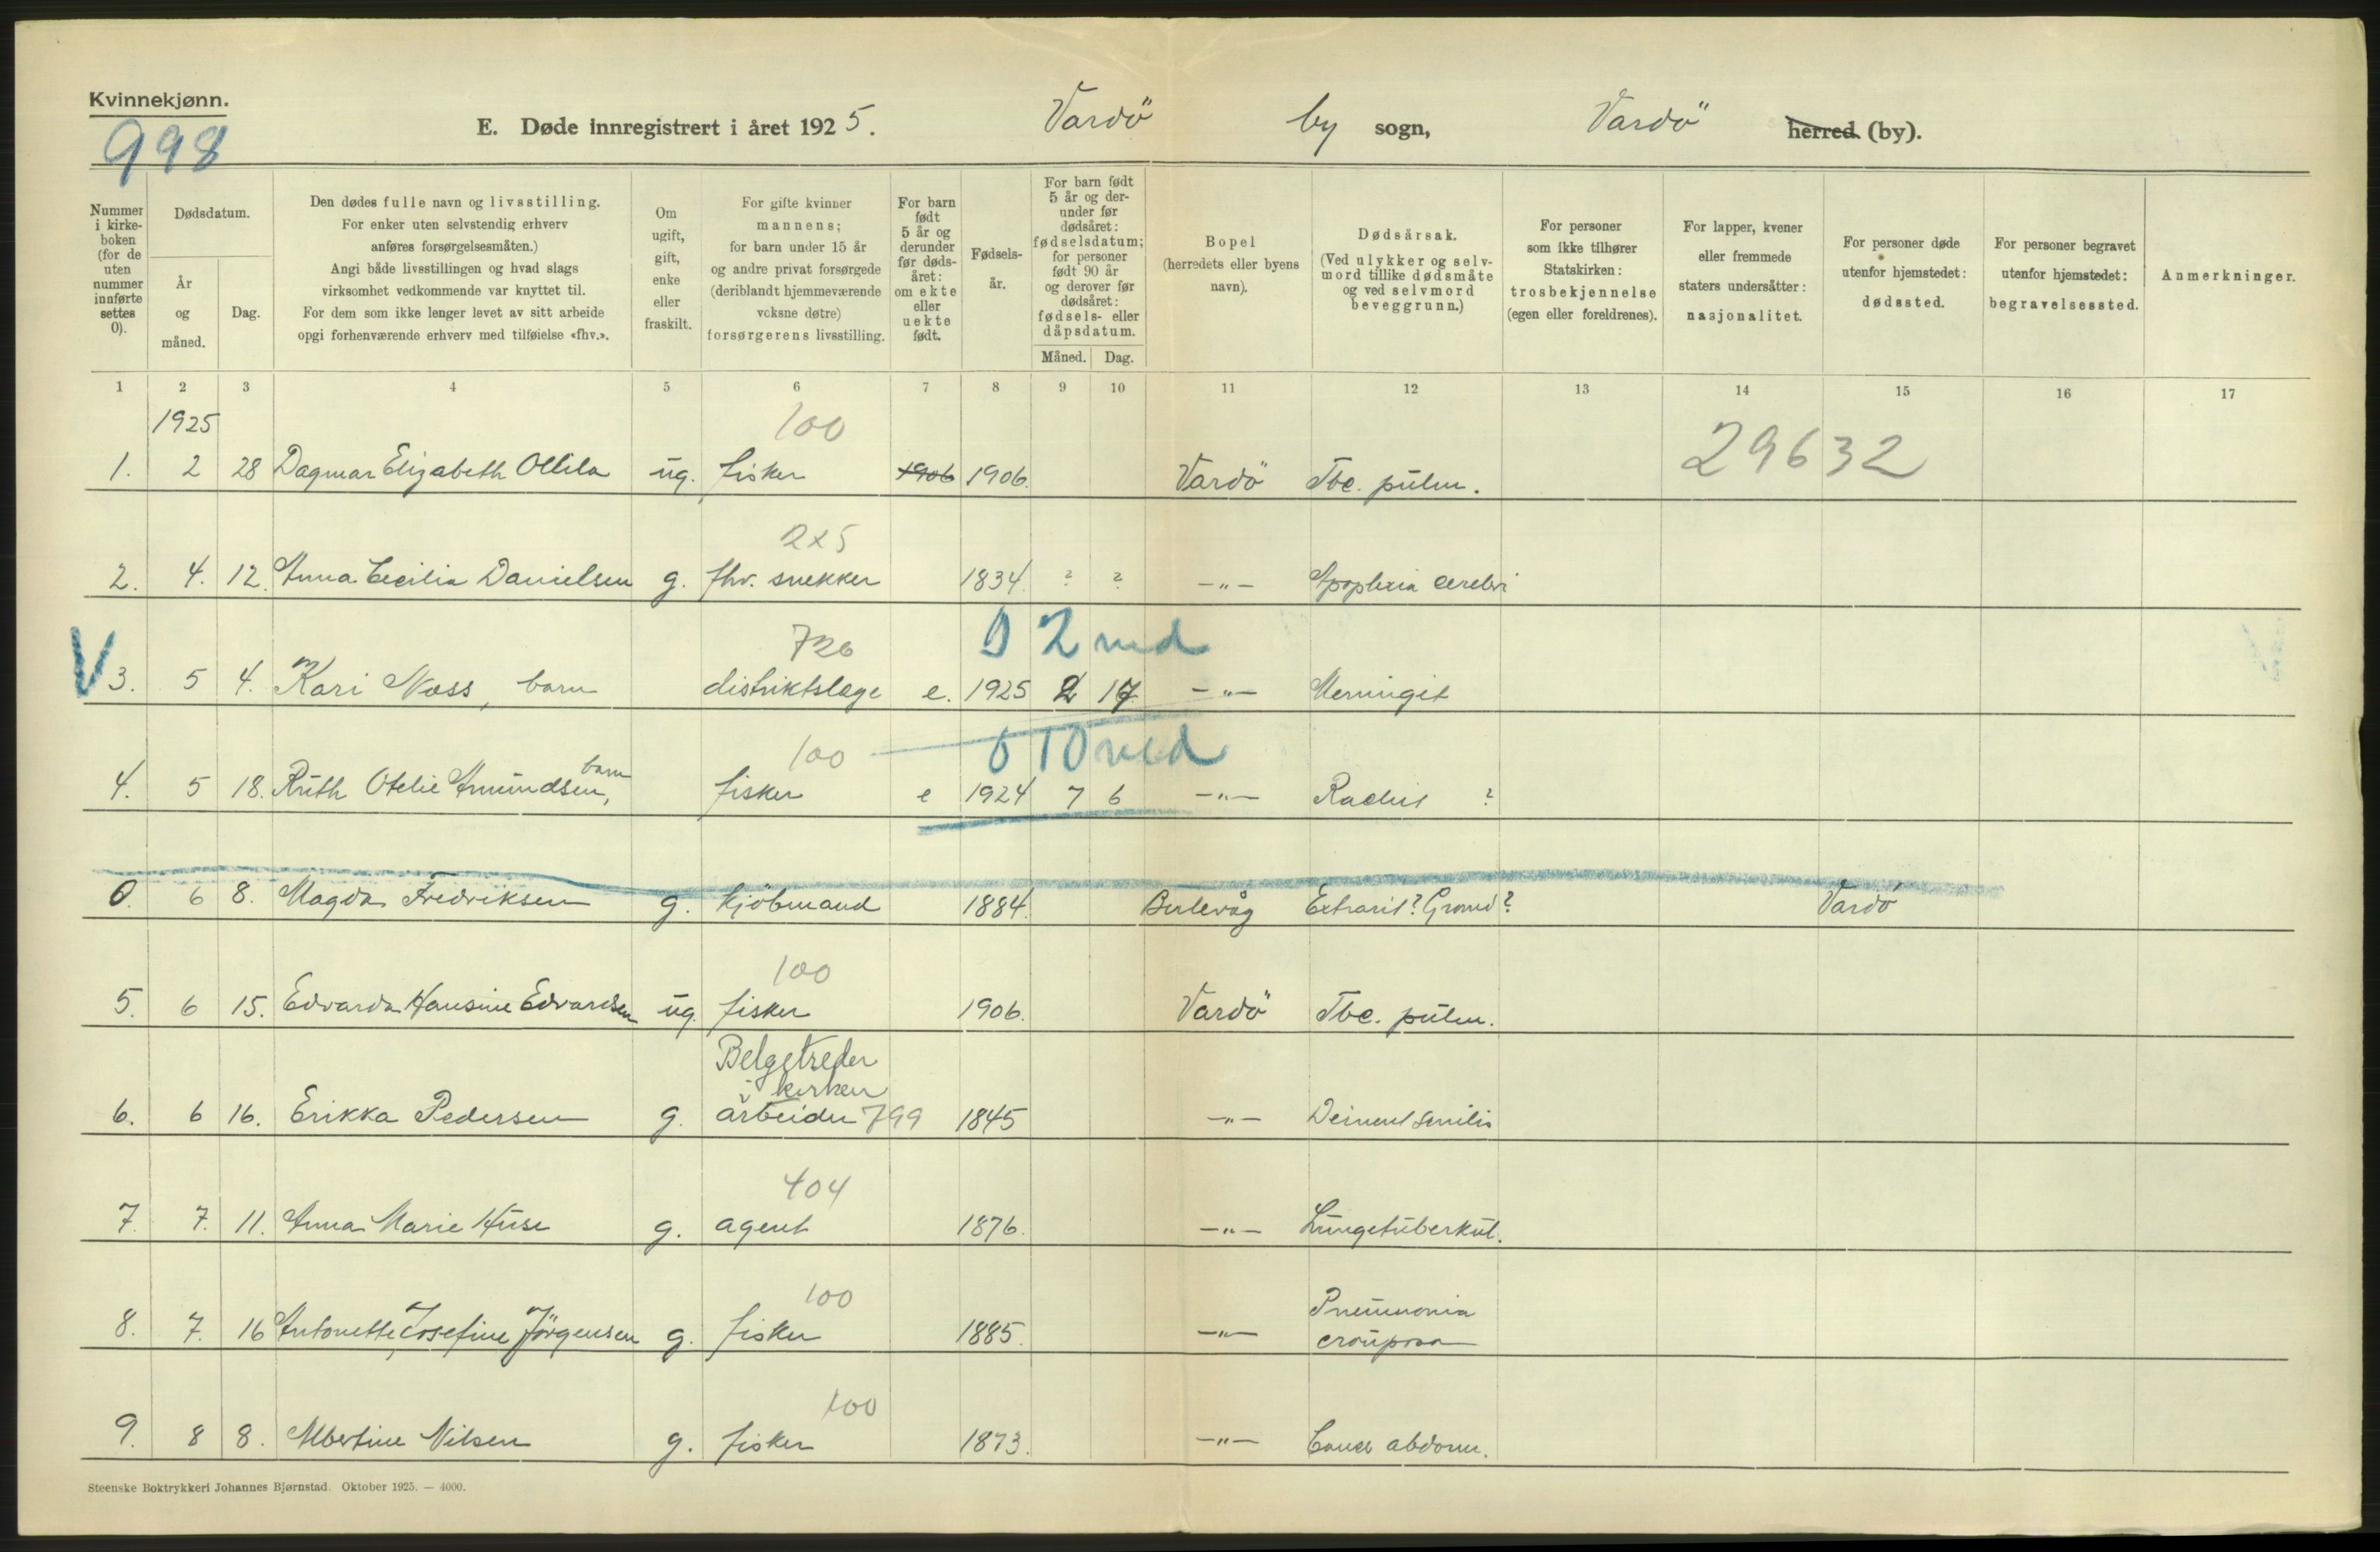 Kvinnekjønn.
998
E. Døde innregistrert i året 1925. Vardö by sogn, Vardö herred (by).
Nummer i kirke- boken (for de uten nummer innførte settes 0).
Dødsdatum.
År og måned.
Dag.
Den dødes fulle navn og livsstilling.
For enker uten selvstendig erhverv
anføres forsørgelsesmåten.)
Angi både livsstillingen og hvad slags
virksomhet vedkommende var knyttet til.
For dem som ikke lenger levet av sitt arbeide
opgi forhenværende erhverv med tilføielse «fhv.».
Om ugift, gift, enke eller fraskilt.
For gifte kvinner
mannens;
for barn under 15 år
og andre privat forsørgede
(deriblandt hjemmeværende
voksne døtre)
forsørgerens livsstilling.
For barn født 5 år og derunder før døds- året: om ekte eller uekte født.
Fødsels- år.
For barn født 5 år og der- under før dødsåret: fødselsdatum; for personer født 90 år og derover før dødsåret: fødsels- eller dåpsdatum.
Måned. Dag.
Bopel
(herredets eller byens
navn).
Dødsårsak.
(Ved ulykker og selv-
mord tillike dødsmåte
og ved selvmord
beveggrunn.)
For personer
som ikke tilhører
Statskirken:
trosbekjennelse
(egen eller foreldrenes).
For lapper, kvener
eller fremmede
staters undersåtter:
nasjonalitet.
For personer døde
utenfor hjemstedet:
dødssted.
For personer begravet
utenfor hjemstedet:
begravelsessted.
Anmerkninger.
1 2 3 4 5 6 7 8 9 10 11 12 13 14 15 16 17
1925 100
1. 2 28 Dagmar Elizabeth Ollila ug. fisker 1906 1906. Vardö Tbc. pulm. 29632
2x5
2. 4. 12. Anna Cecilia Danielsen g. fhv. snekker 1834. ? ? -"- Apoplexia cerebri
726 0 2 md
V 3. 5 4. Kari Næss, barn distriktslæge e. 1925 2 17 -"- Meningit
100 0 10 md
4. 5 18. Ruth Otelie Amundsen, barn fisker e 1924 7 6 -"- Rachit ?
0. 6 8. Magda Fredriksen g. kjöbmand 1884. Berlevåg Extrauit? Gravid? Vardö
100
5. 6 15. Edvarda Hansine Edvardsen ug. fisker 1906. Vardö Tbc. pulm.
Belgetreder
i kirken
6. 6 16. Erikka Pedersen g. arbeider 799 1845 -"- Dement senilis
404
7. 7. 11. Anna Marie Huse g. agent 1876. -"- Lungetuberkul.
100
8. 7. 16 Antonette Josefine Jörgensen g. fisker 1885. -"- Pneumonia crouposa
100
9. 8 8. Albertine Nilsen g. fisker 1873. -"- Cancer abdom.
Steenske Boktrykkeri Johannes Bjørnstad. Oktober 1925. — 4000.